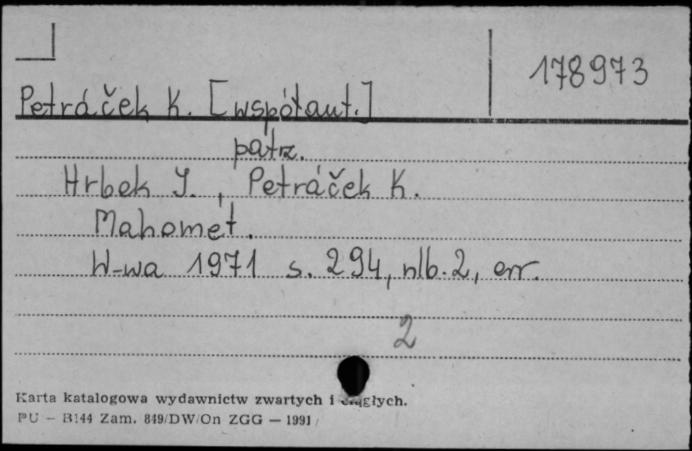 178973
Petráček K. [współaut.]
patrz.
Hrbek J., Petráček K.
Mahomet.
W-wa 1971 s. 294, nlb. 2, err.
2
Karta katalogowa wydawnictw zwartych i ciągłych.
PU - B144 Zam. 849/DW/On ZGG — 1991